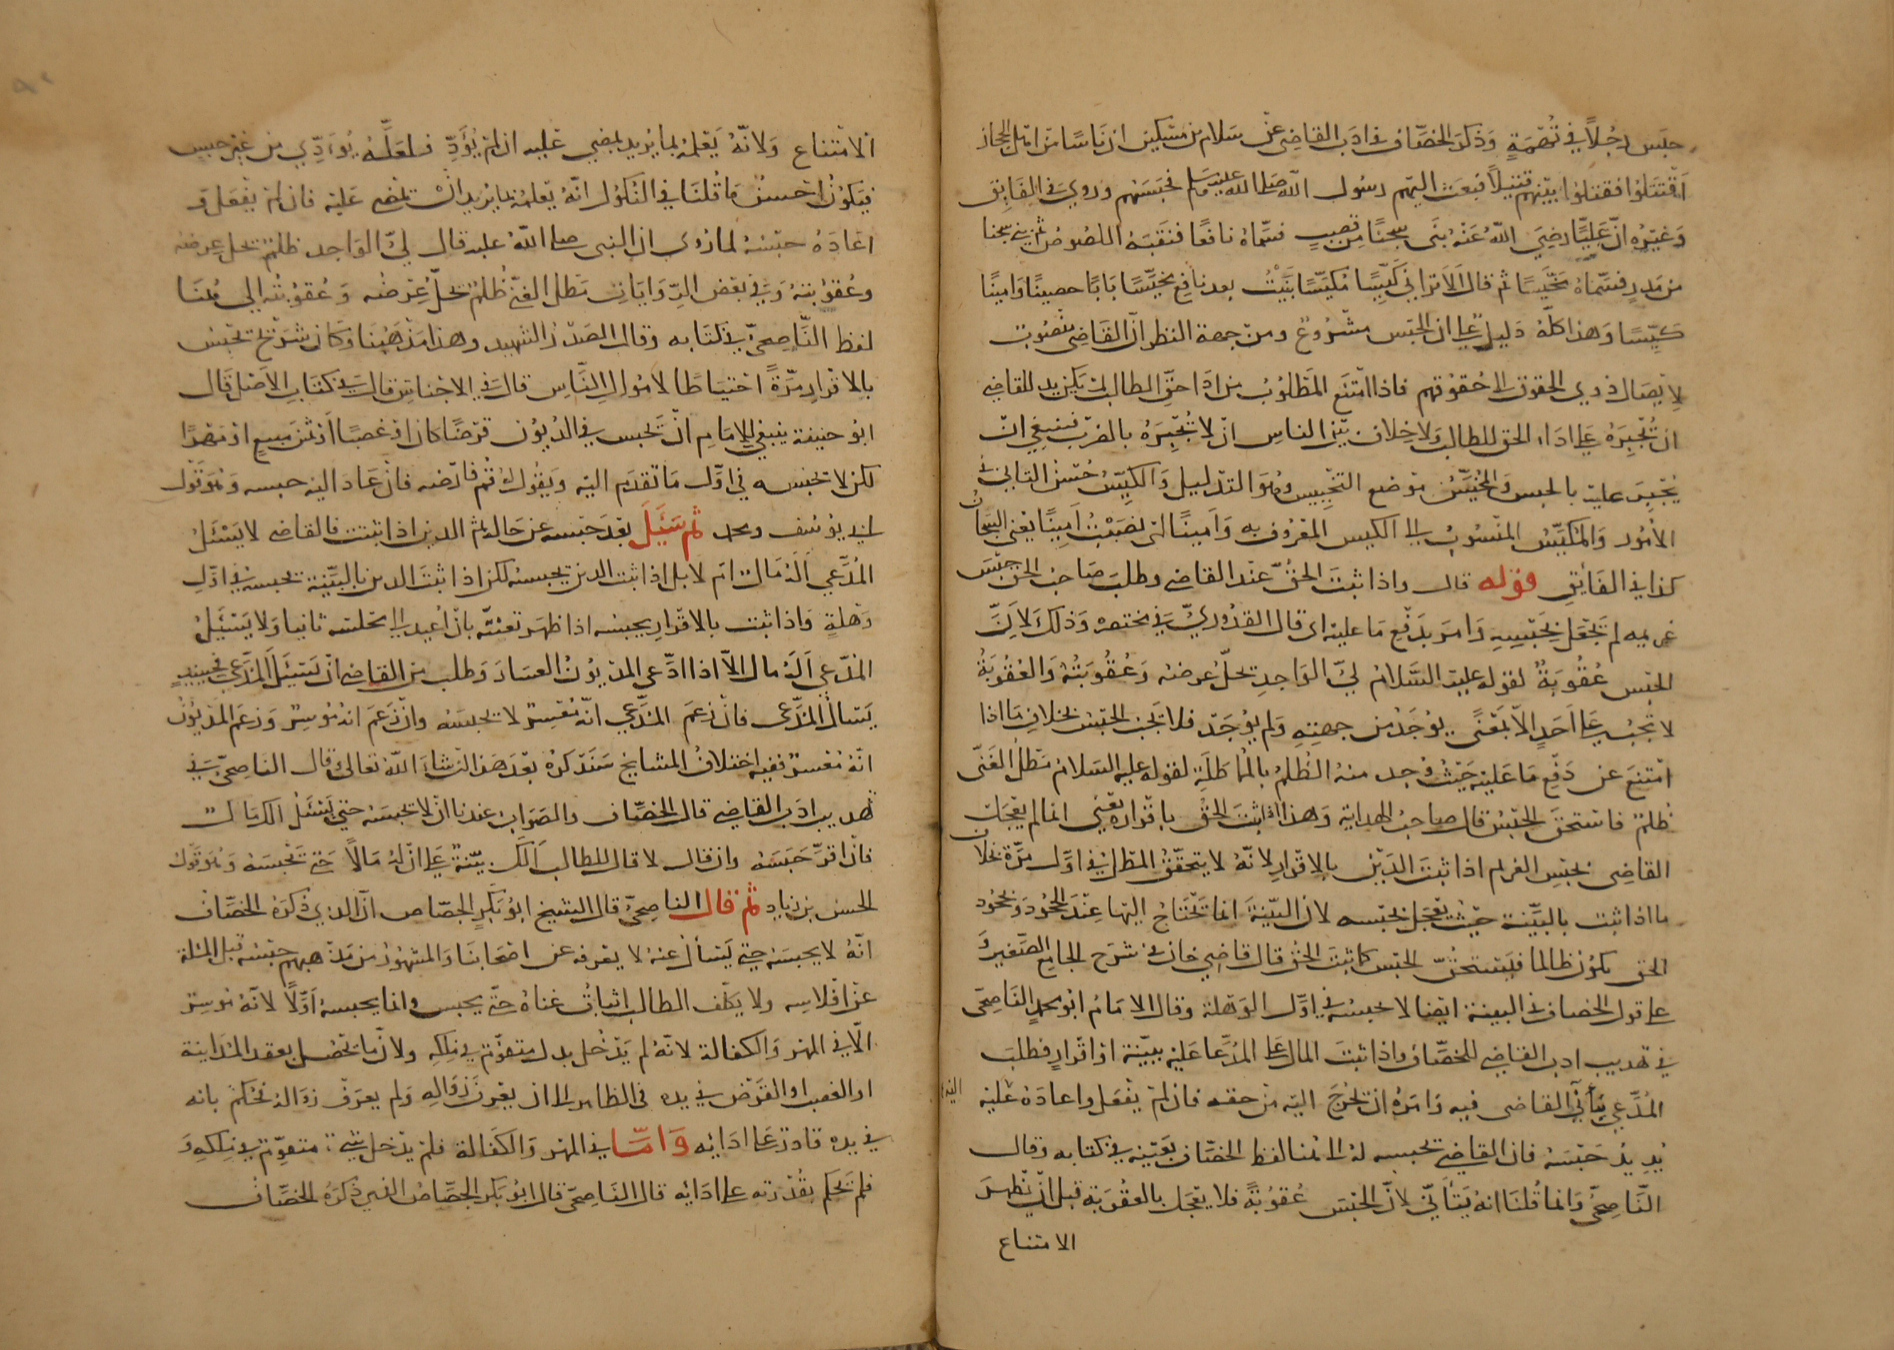 حبس رجلا في تهمة وذكر الخصاف في ادب القاضي عن سلام بن مسكين ان ناسا من اهل الحجاز
اقتتلوا فقتلوا بينهم قتيلا فبعث اليهم رسول الله صلى الله عليه وسلم فحبسهم وروي في الفايق
وغيره ان عليا رضي الله عنه بنى سجنا من قصب فسماه نافعا فنقبه اللصوص ثم بنى سجنا
من مدر فسماه مخيسا ثم قال الا تراني كيسا مكيسا بنيت بعد نافع مخيسا بابا حصينا وامينا
كيسا وهذا كله دليل على ان الحبس مشروع ومن جهة النظر ان القاضي منصوب
لايصال ذوي الحقوق الى حقوقهم فاذا امتنع المطلوب من اداء حق الطالب لم يكن بد للقاضي
ان يجبره على اداء الحق للطالب ولا خلاف بين الناس ان لا يجبره بالضرب فينبغي ان
يجبر عليه بالحبس والمخيس موضع التخييس وهو التذليل والكيس حسن التاني في
الامور والمكيس المنسوب الى الكيس المعروف به وامينا اي نصبت امينا يعني السجان
كذا في الفايق قوله قال واذا ثبت الحق عند القاضي وطلب صاحب الحق حبس
غريمه لم يجعل بحبسه وامر بدفع ما عليه اي قال القدوري في مختصره وذلك لان
الحبس عقوبة لقوله عليه السلام لي الواجد يحل عرضه وعقوبته والعقوبة
لا تجب على احد الا بمعنى يوجد من جهته ولم يوجد فلا يجب الحبس بخلاف ما اذا
امتنع عن دفع ما عليه حيث وجد منه الظلم بالمماطلة لقوله عليه السلام مطل الغني
ظلم فاستحق الحبس قال صاحب الهداية وهذا اذا ثبت الحق باقراره يعني انما لم يعجل
القاضي بحبس الغريم اذا ثبت الدين بالاقرار لانه لا يتحقق المطل في اول مرة بخلاف
ما اذا ثبت بالبينة حيث يعجل بحبسه لان البينة انما يحتاج اليها عند الجحود وبجحود
الحق يكون ظالما فيستحق الحبس كما ثبت الحق قال قاضي خان في شرح الجامع الصغير و
على قول الخصاف في البينة ايضا لا يحبسه في اول الوهلة وقال الامام ابو محمد الناصحي
في تهذيب ادب القاضي للخصاف واذا ثبت المال على المدعا عليه ببينة او اقرار فطلب
المدعي يتأنى القاضي فيه وامره ان يخرج اليه من حقه فان لم يفعل واعاده عليه
يريد حبسه فان القاضي يحبسه له الى هنا لفظ الخصاف بعينه في كتابه وقال
الناصحي وانما قلنا انه يتأنى لان الحبس عقوبة فلا يعجل بالعقوبة قبل ان يظهر
الامتناع
الامتناع ولانه يعلمه بما يريد يمضي عليه ان لم يؤد فلعله يؤدي من غير حبس
فيكون احسن ما قلنا في النكول انه يعلمه بما يريد ان يمضي عليه فان لم يفعل و
اعاده حبسه لما روي ان النبي صلى الله عليه قال لي الواجد ظلم يحل عرضه
وعقوبته وفي بعض الروايات مطل الغني ظلم يحل عرضه وعقوبته الى هنا
لفظ الناصحي في كتابه وقال الصدر الشهيد وهذا مذهبنا وكان شريح يحبس
بالاقرار مرة احتياطا لاموال الناس قال في الاجناس قال في كتاب الاصل قال
ابو حنيفة ينبغي للامام ان يحبس في الديون قرضا كان او غصبا او ثمن مبيع او مهرا
لكن لا يحبسه في اول ما تقدم اليه ويقول له قم فارضه فان عاد اليه حبسه وهو قول
ابي يوسف ومحمد ثم سئل بعد حبسه عن حاله ثم الدين اذا ثبت فالقاضي لا يسئل
المدعي اله مال ام لا بل اذا ثبت الدين يحبسه لكن اذا ثبت الدين بالبينة يحبسه في اول
وهلة واذا ثبت بالاقرار يحبسه اذا ظهر تعنته بان اعيد الى مجلسه ثانيا ولا يسئل
المدعي اله مال الا اذا ادعى المديون العسار وطلب من القاضي ان يسئل المدعي فحينئذ
يسال المدعي فان زعم المدعي انه معسر لا يحبسه وان زعم انه موسر وزعم المديون
انه معسر ففيه اختلاف المشايخ سنذكره بعد هذا ان شاء الله تعالى وقال الناصحي في
تهذيب ادب القاضي قال الخصاف والصواب عندنا ان لا يحبسه حتى يسئل الك مال
فان اقر حبسه وان قال لا قال للطالب الك بينة على ان له مالا حتى تحبسه وهو قول
الحسن بن زياد ثم قال الناصحي قال الشيخ ابو بكر الجصاص ان الذي ذكره الخصاف
انه لا يحبسه حتى يسأل عنه لا يعرفه عن اصحابنا والمشهور من مذهبهم حبسه قبل المسئلة
عن افلاسه ولا يكلف الطالب اثبات غناه حتى يحبس وانما يحبسه اولا لانه موسر
الا في المهر والكفالة لانه لم يدخل بدل متقوم في ملكه ولان ما تحصل بعقد المداينة
او الغصب او القرض في يده في الظاهر الى ان يعرف زواله ولم يعرف زواله فحكم بانه
في يده قادر على ادائه واما في المهر والكفالة فلم يدخل شيء متقوم في ملكه و
فلم يحكم بقدرته على ادائه قال الناصحي قال ابو بكر الجصاص الذي ذكره الخصاف